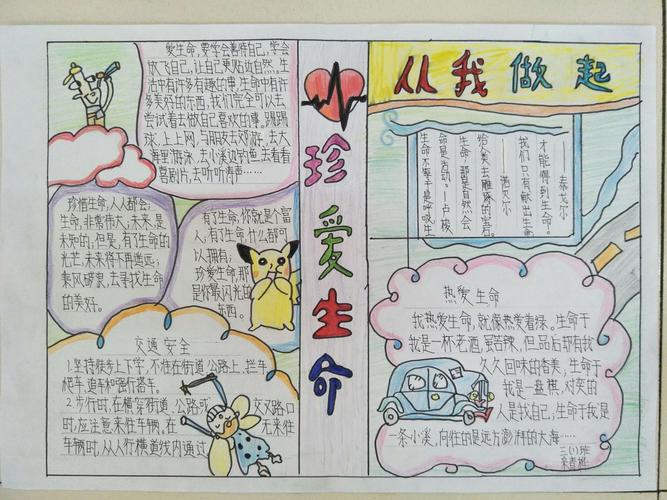 爱生命，要学会善待自己，学会
放飞自己，让自己更贴近自然。生
活中有许多有趣的事，生命中有许
多美好的东西，我们完全可以去
尝试着去做自己喜欢的事。踢踢
球，上上网，与朋友去郊游，去大
海里游泳，去小溪边钓鱼，去看看
喜剧片，去听听涛声……
珍惜生命，人人都会；
生命，非常伟大，未来，是
未知的，但是，有了生命的
光芒，未来将不再遥远；
乘风破浪，去寻找生命
的美好。
有了生命，你就是个富
人；有了生命，什么都可
以拥有；
珍爱生命，那
是你最闪光的
东西。
交通安全
1.坚持徒步上下学，不准在街道公路上，拦车
爬车，追车和强行搭车。
2.步行时，在横穿街道、公路或交叉路口
时，应注意来往车辆。在无来往
车辆时，从人行横道线内通过
珍爱生命
从我做起
——泰戈尔
才能得到生命。
我们只有献出生命
——诺贝尔
给人类去雕琢的宝石。
生命，那是自然会
命是活动。——卢梭
生命不等于是呼吸，生
热爱生命
我热爱生命，就像热爱着绿。生命于
我是一杯老酒，虽苦辣，但品后却有我
久久回味的香美，生命于
我是一盘棋，对奕的
人是我自己，生命于我是
一条小溪，向往的是远方澎湃的大海……
三(1)班